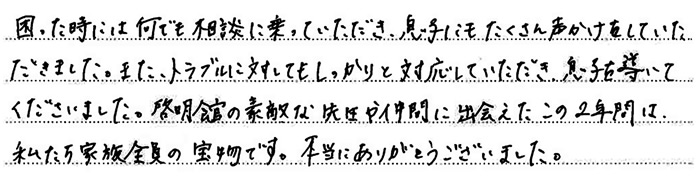 困った時には何でも相談に乗っていただき、息子にもたくさん声かけをしていた
だきました。また、トラブルに対してもしっかりと対応していただき、息子を導いて
くださいました。啓明館の素敵な先生や仲間に出会えたこの2年間は、
私たち家族全員の宝物です。本当にありがとうございました。